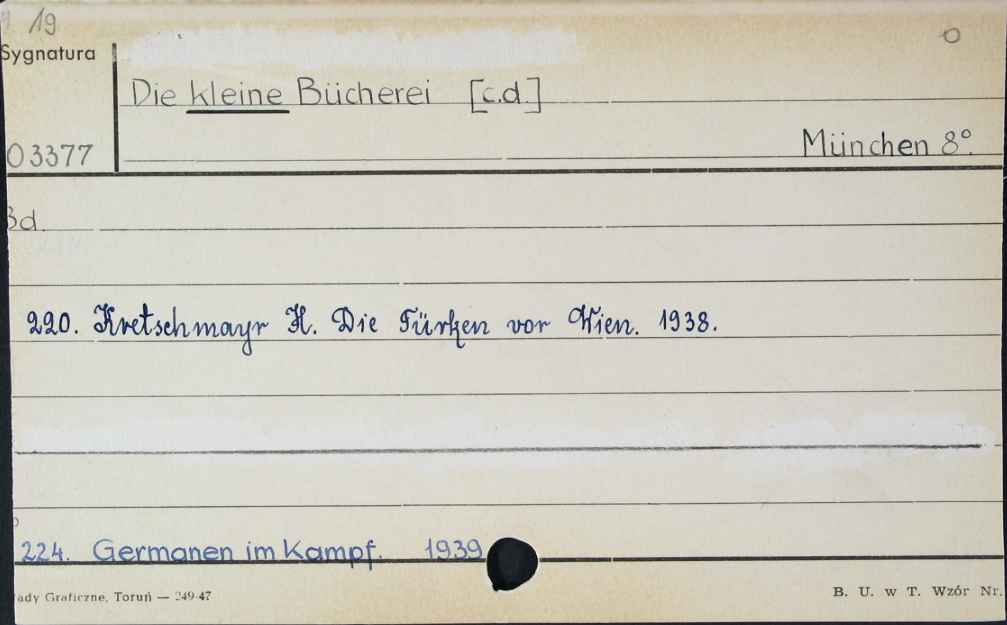 19
Sygnatura
Die kleine Bücherei [c.d.]
03377
München 8°.
Bd.
220. Kretschmayr H. Die Türken vor Wien. 1938.
224. Germanen im Kampf. 1939
ady Graficzne, Toruń — 249-47
B. U. w T. Wzór Nr.